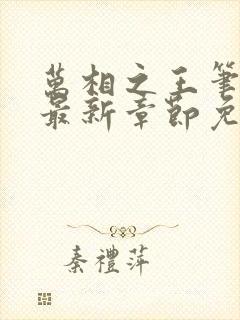 萬相之王筆
最新章節免
秦禮萍